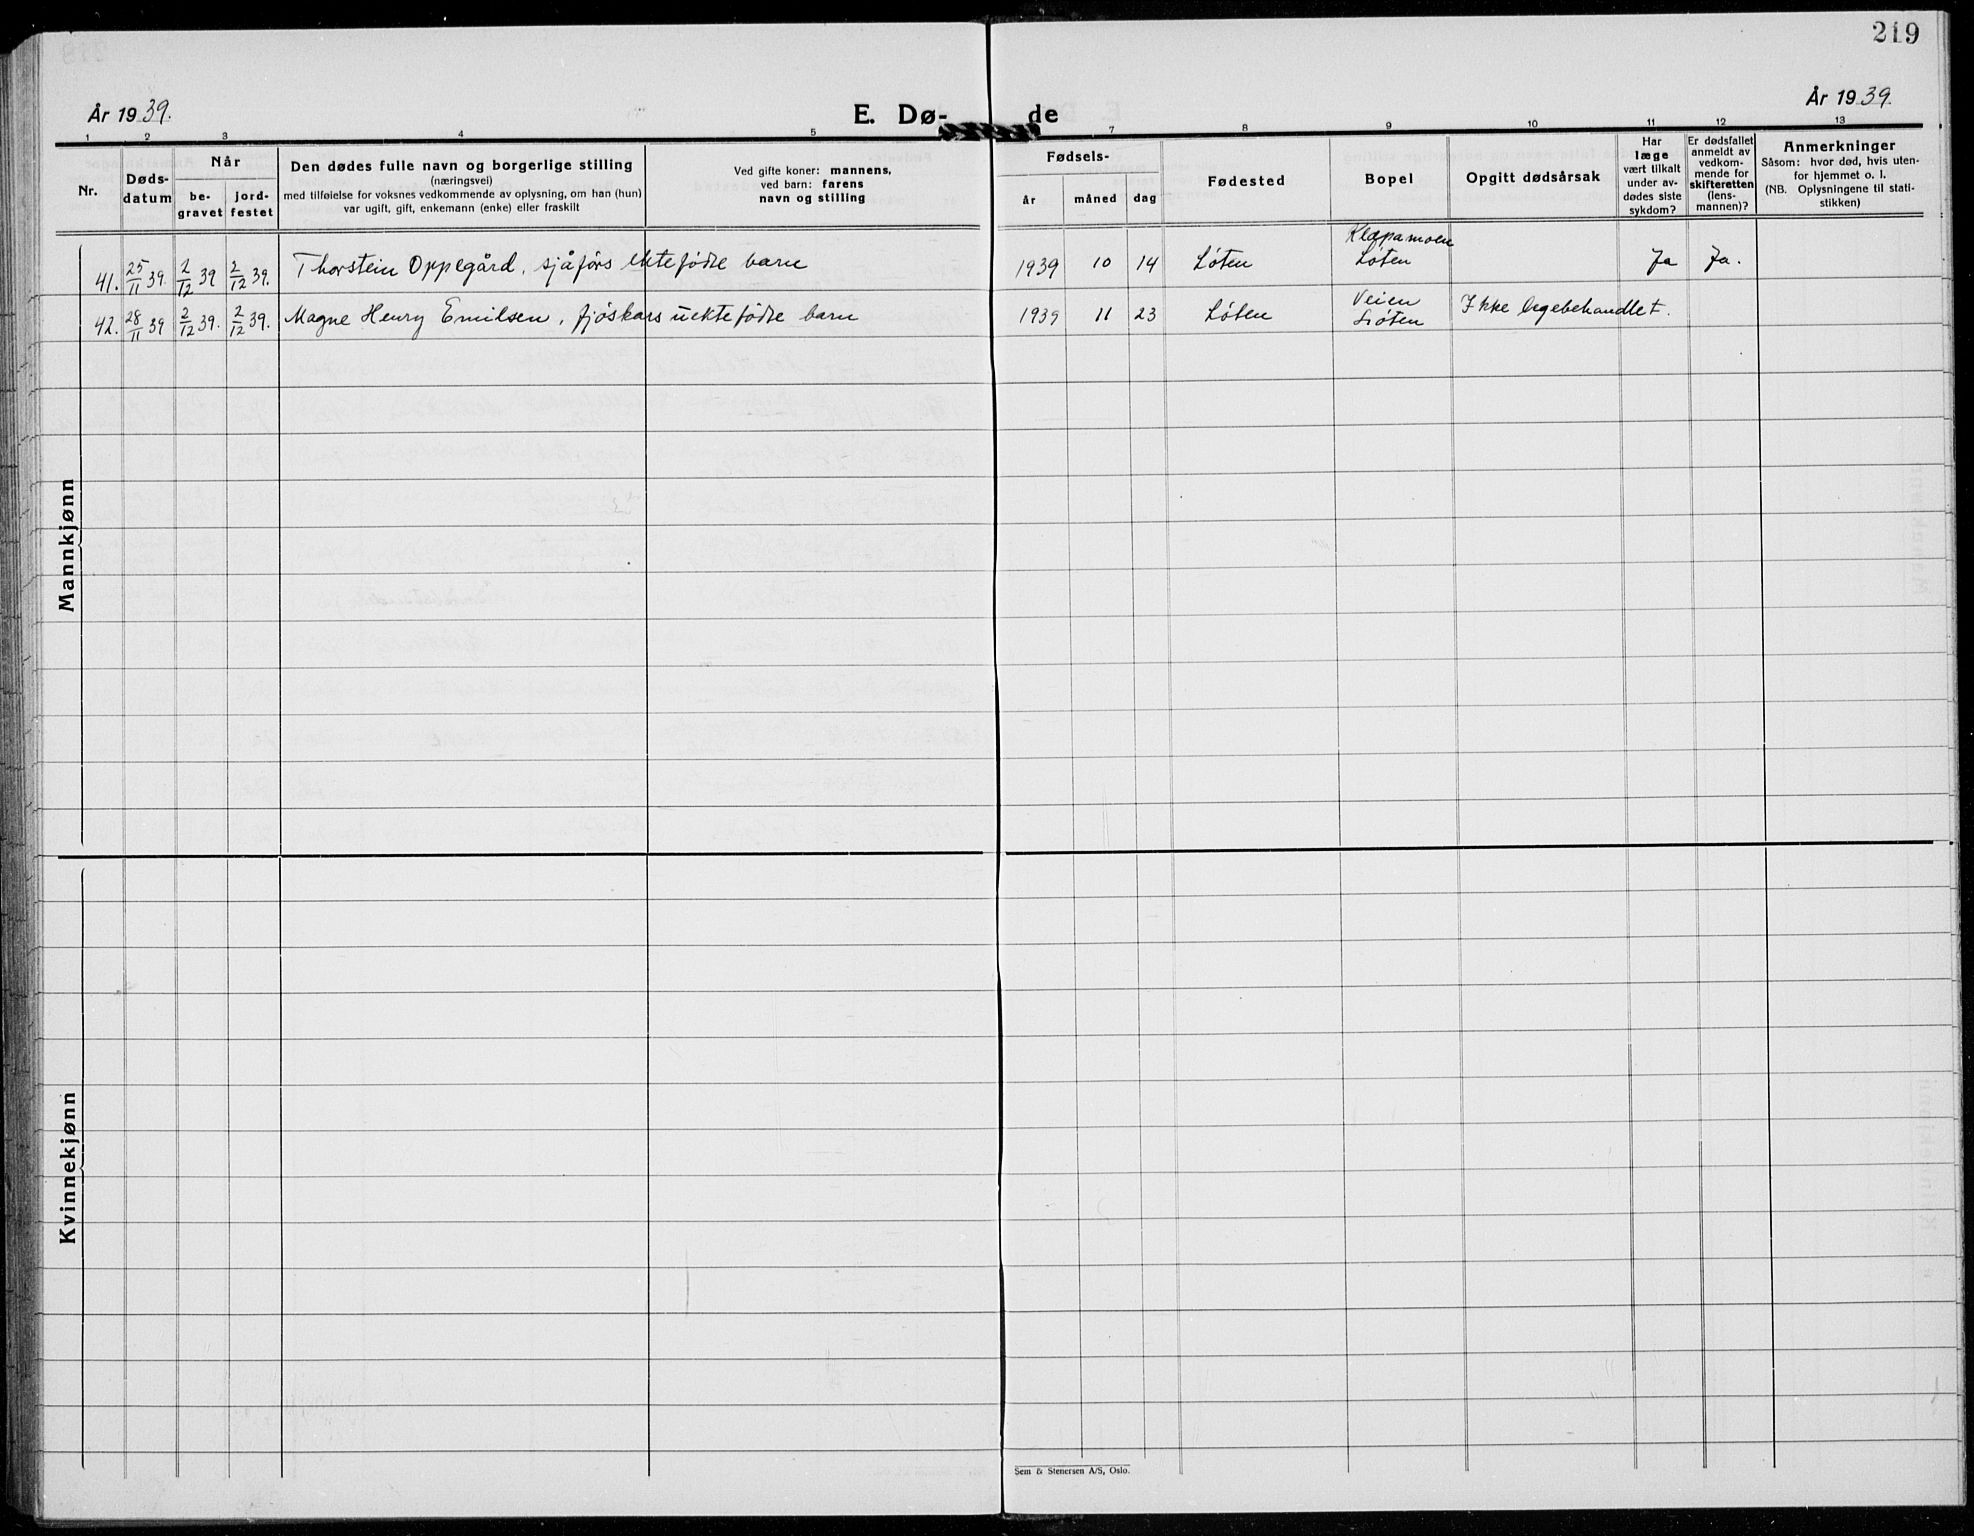 219
År 1939.
E. Dø-
de
År 1939.
1 2 3 4 5 7 8 9 10 11 12 13
Nr.
Døds-
datum
Når
be-
gravet
jord-
festet
Den dødes fulle navn og borgerlige stilling
(næringsvei)
med tilføielse for voksnes vedkommende av oplysning, om han (hun)
var ugift, gift, enkemann (enke) eller fraskilt
Ved gifte koner: mannens,
ved barn: farens
navn og stilling
Fødsels-
år
måned
dag
Fødested
Bopel
Opgitt dødsårsak
Har
læge
vært tilkalt
under av-
dødes siste
sykdom?
Er dødsfallet
anmeldt av
vedkom-
mende for
skifteretten
(lens-
mannen)?
Anmerkninger
Såsom: hvor død, hvis uten-
for hjemmet o. l.
(NB. Oplysningene til stati-
stikken)
Mannkjønn
41. 25/11 39. 2/12 39 2/12 39. Thorstein Oppegård, sjåførs ektefødte barn 1939 10 14 Løten Klæpamoen
Løten Ja Ja.
42. 28/11 39 2/12 39. 2/12 39. Magne Henry Emilsen, fjøskars uektefødte barn 1939 11 23 Løten Veien
Løten Ikke legebehandlet.
Kvinnekjønn
Sem & Stenersen A/S, Oslo.